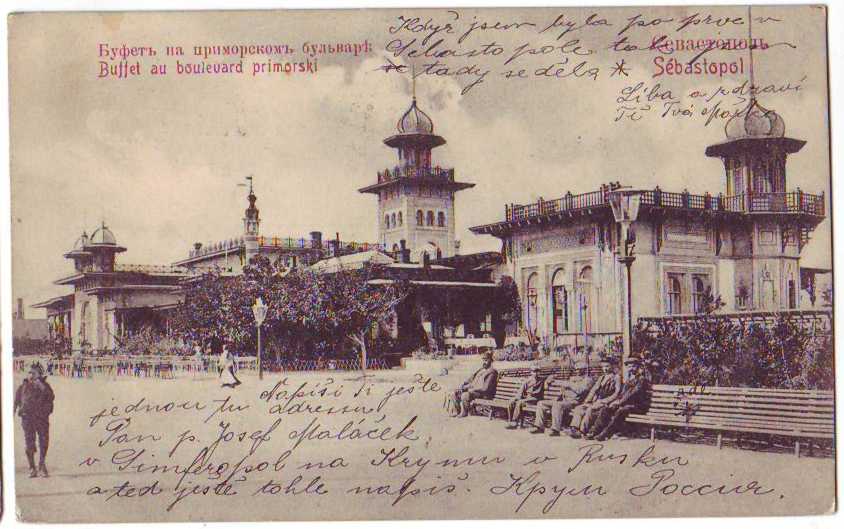 Буфетъ на приморскомъ бульварѣ
Buffet au boulevard primorski
Севастополь
Sébastopol
Když jsem byla po prve v
Sebastopole tak jsem
tady seděla *
Líba a zdraví
Tě Tvá Mařka
Napíši Ti ještě
jednou tu adressu!
Pan p. Josef Maláček
v Simferopol na Krymu v Rusku
a teď ještě tohle napiš. Крум Россия.